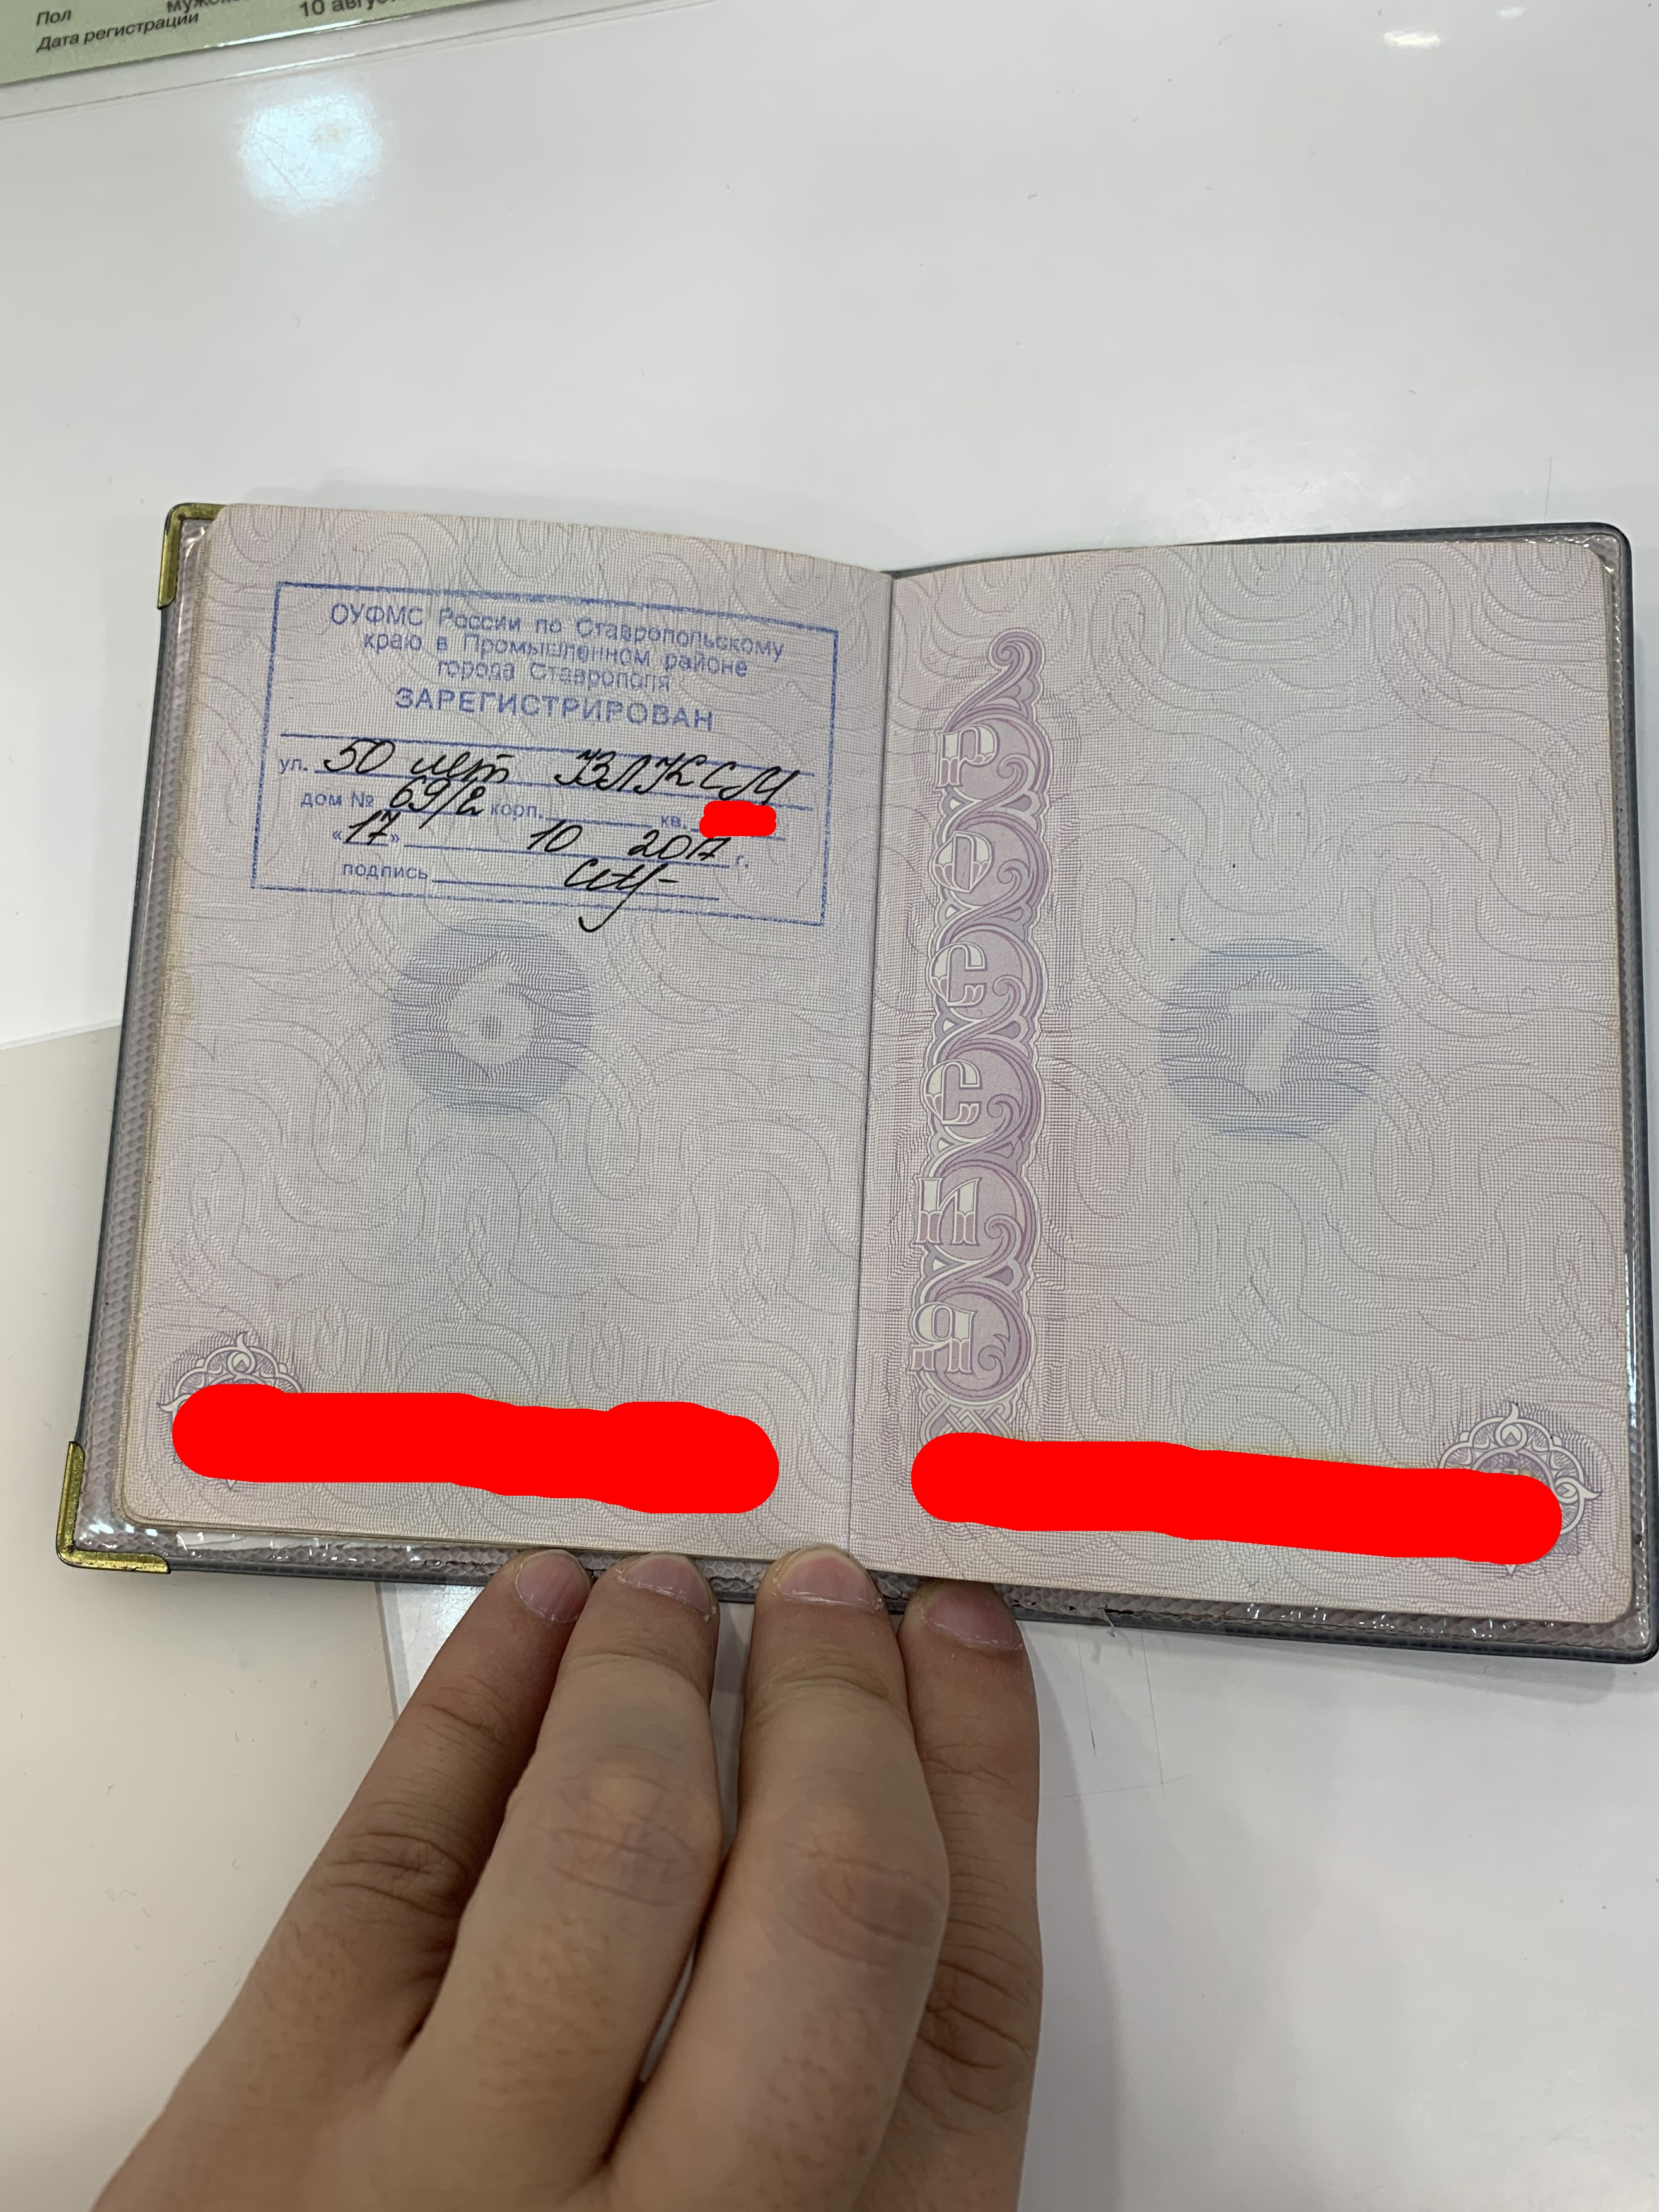 Пол
Дата регистрации 10
ОУФМС России по Ставропольскому
краю в Промышленном районе
города Ставрополя
ЗАРЕГИСТРИРОВАН
ул. 50 лет ВЛКСМ
дом № 69/2 корп. кв.
«17» 10 2017 г.
подпись
6
РОССИЯ
7